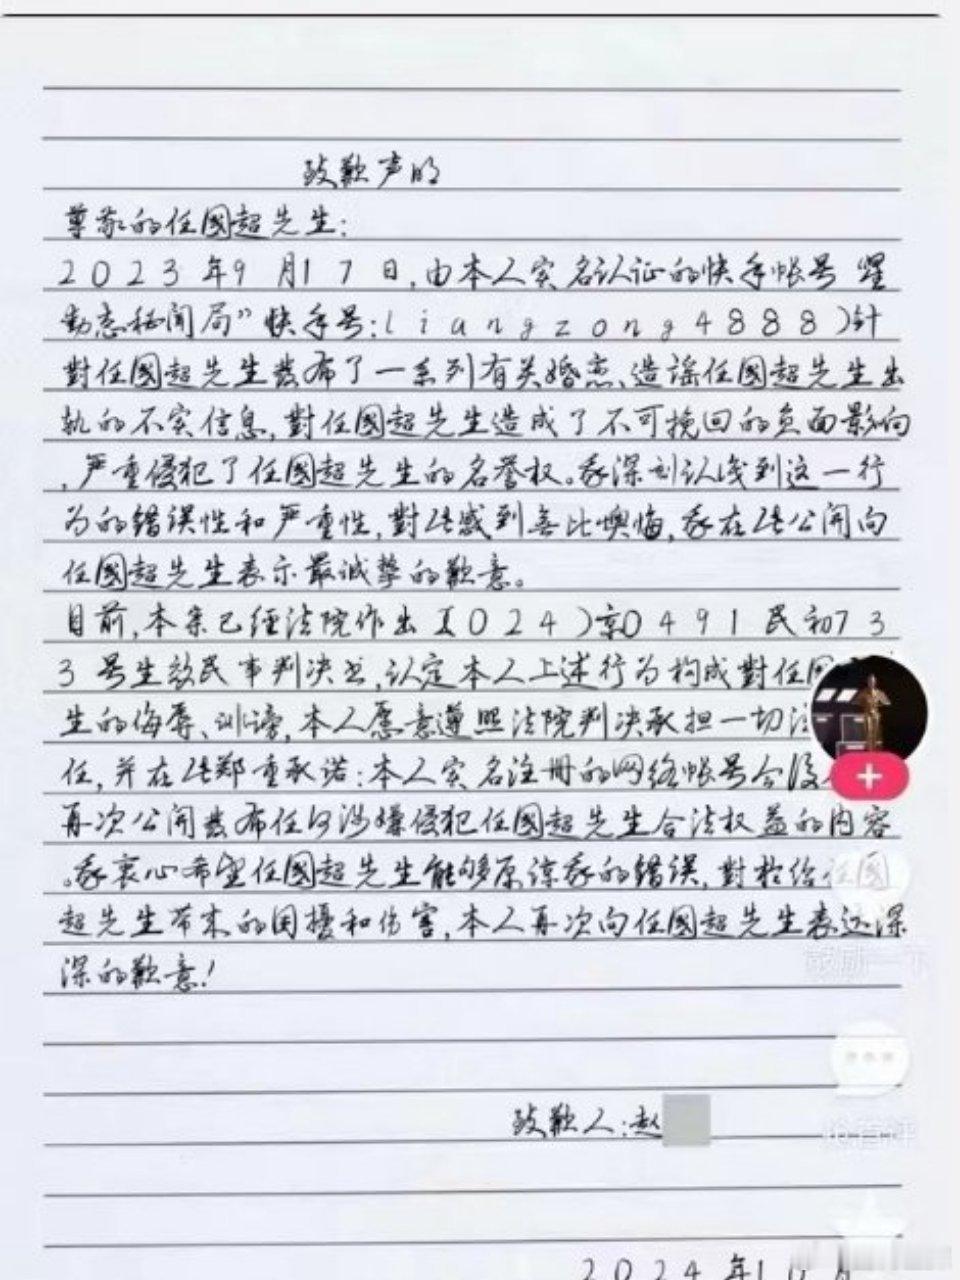 致歉声明
尊敬的任國超先生:
2023年9月17日,由本人实名认证的快手帐号 星
動态秘聞局”快手号:liangzong4888)针
對任國超先生發布了一系列有关婚恋、造谣任國超先生出
轨的不实信息,對任國超先生造成了不可挽回的负面影响
,严重侵犯了任國超先生的名誉权。我深刻认识到这一行
为的错误性和严重性,對此感到無比懊悔,我在此公開向
任國超先生表示最诚挚的歉意。
目前,本案已经法院作出 024)京0491民初73
3号生效民事判决书,认定本人上述行为构成對任國
生的侮辱、诽謗,本人愿意遵照法院判决承担一切法
任,并在此郑重承诺:本人实名注册的网络帐号会
再次公開發布任何涉嫌侵犯任國超先生合法权益的内容
。我衷心希望任國超先生能够原谅我的错误,對於给任國
超先生带来的困擾和伤害,本人再次向任國超先生表达深
深的歉意!
鼓励一下
致歉人:赵
抢首评
2024年10月